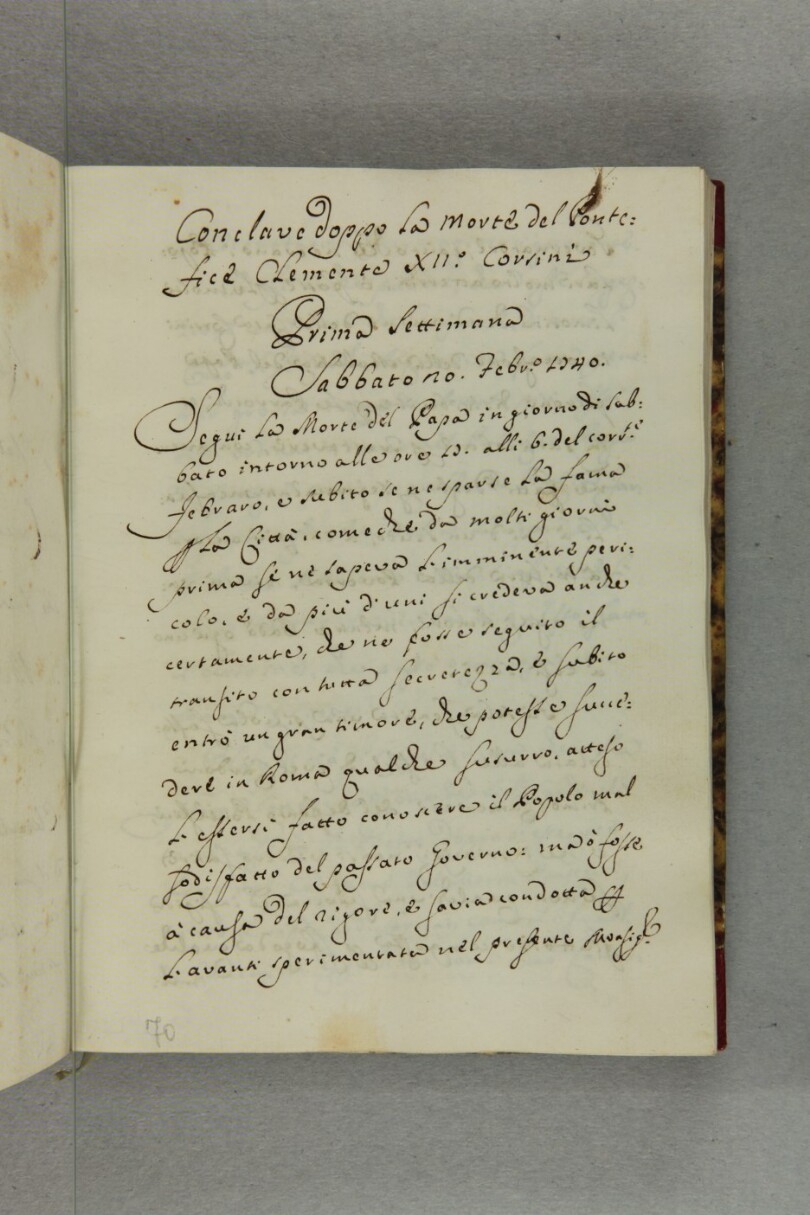 Conclave doppo la morte del Ponte:
fice Clemente XII.º Corsini
Prima Settimana
Sabbato 20. Febr.º 1740.
Seguì la Morte del Papa in giorno di Sab:
bato intorno alle ore 17. alli 6. del cors.e
Febraro, e subito se ne sparse la fama
la Città, come che da molti giorni
prima se ne sapeva l'imminente peri:
colo, e da più d'uni si credeva anche
certamente, che ne fosse seguito il
transito con tutta secretezza, e subito
entrò un gran timore, che potesse succe:
dere in Roma qualche susurro, atteso
l'essersi fatto conoscere il Popolo mal
sodisfatto del passato Governo: ma ò fosse
à causa del rigore, e savia condotta
l'avanti sperimentata nel presente Monsig.r
70